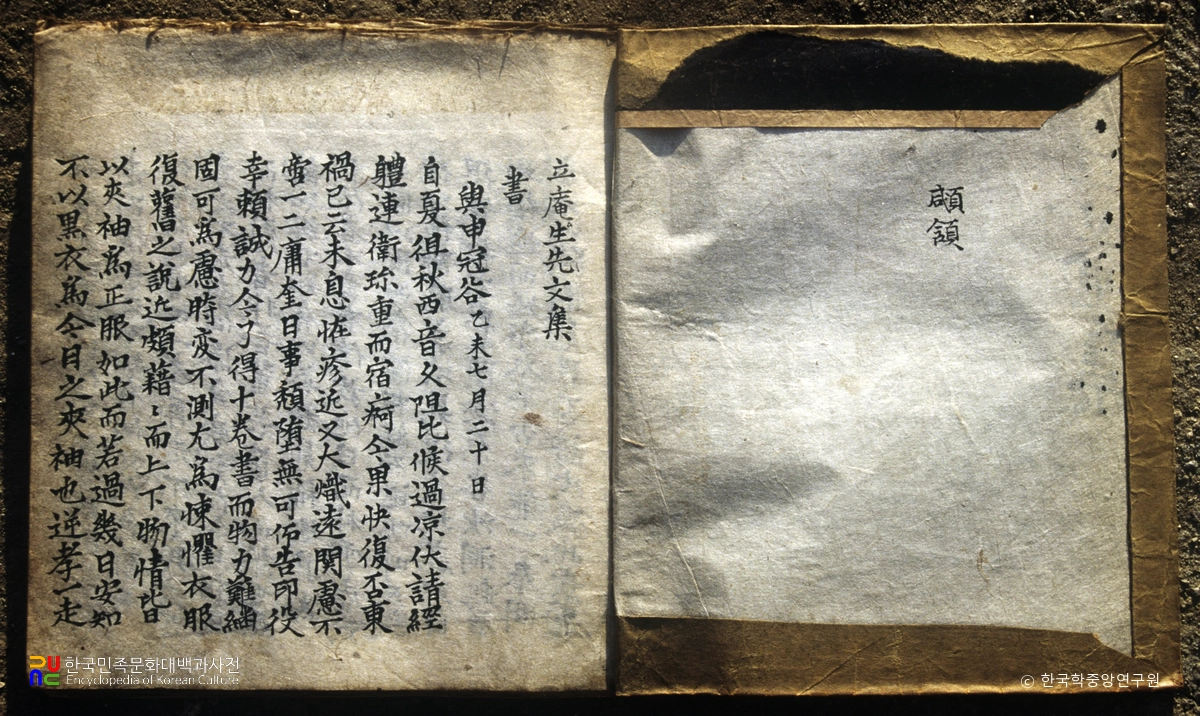 頤頷
立庵生先文集
書
與申冠谷 乙未七月二十日
自夏徂秋西音久阻比候過凉伏請經
軆連衛珎重而宿痾今果快復否東
禍已云未息恠疹近又大熾遠関慮不
啻一二庸奎日事頹堕無可仰告印役
幸賴誠力今才得十卷書而物力難繼
固可爲慮時変不測尤爲悚懼衣服
復舊之說近頗藉〻而上下物情皆
以夾袖爲正服如此而若過幾日安知
不以黒衣爲今日之夾袖也逆孝一走
한국민족문화대백과사전
Encyclopedia of Korean Culture
© 한국학중앙연구원